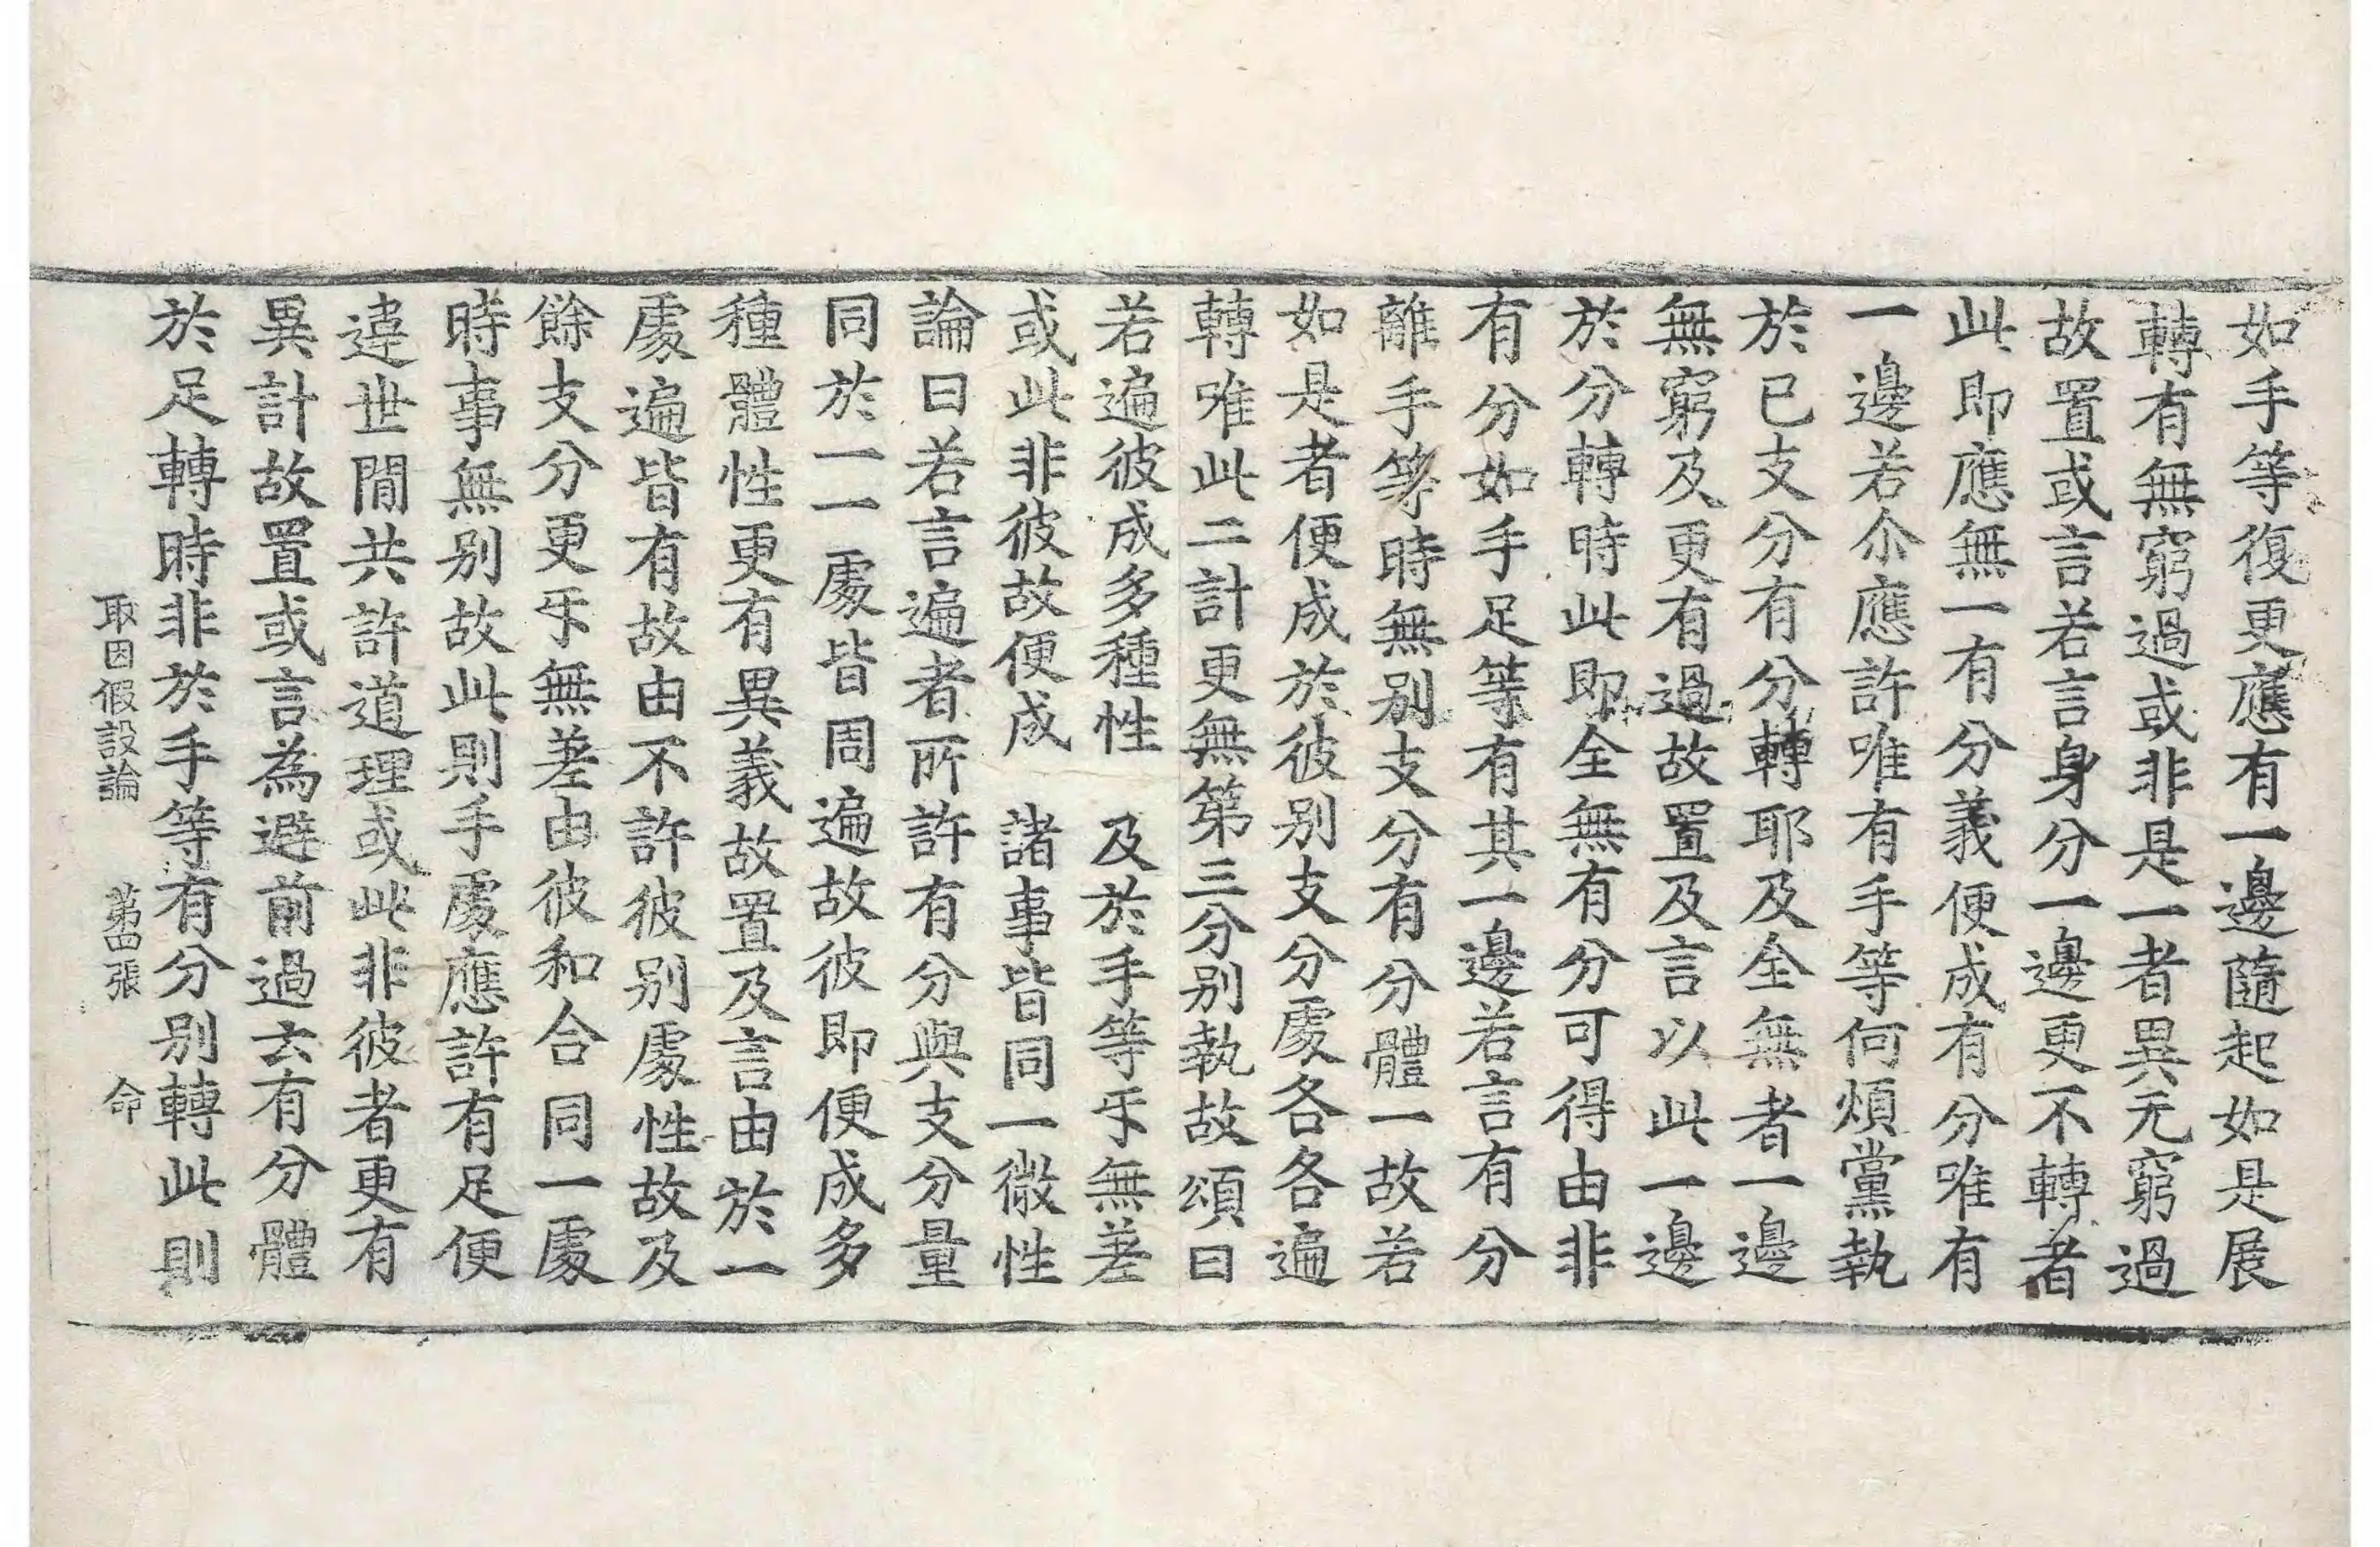 如手等復更應有一邊隨起如是展
轉有無窮過或非是一者異无窮過
故置或言若言身分一邊更不轉者
此即應無一有分義便成有分唯有
一邊若尒應許唯有手等何煩黨執
於已支分有分轉耶及全無者一邊
無窮及更有過故置及言以此一邊
於分轉時此即全無有分可得由非
有分如手足等有其一邊若言有分
離手等時無別支分有分體一故若
如是者便成於彼別支分處各各遍
轉唯此二計更無第三分別執故頌曰
若遍彼成多種性　及於手等㸦無差
或此非彼故便成　諸事皆同一微性
論曰若言遍者所許有分與支分量
同於一一處皆周遍故彼即便成多
種體性更有異義故置及言由於一
處遍皆有故由不許彼別處性故及
餘支分更㸦無差由彼和合同一處
時事無別故此則手處應許有足便
違世間共許道理或此非彼者更有
異計故置或言為避前過云有分體
於足轉時非於手等有分別轉此則
取因假設論　第四張　命